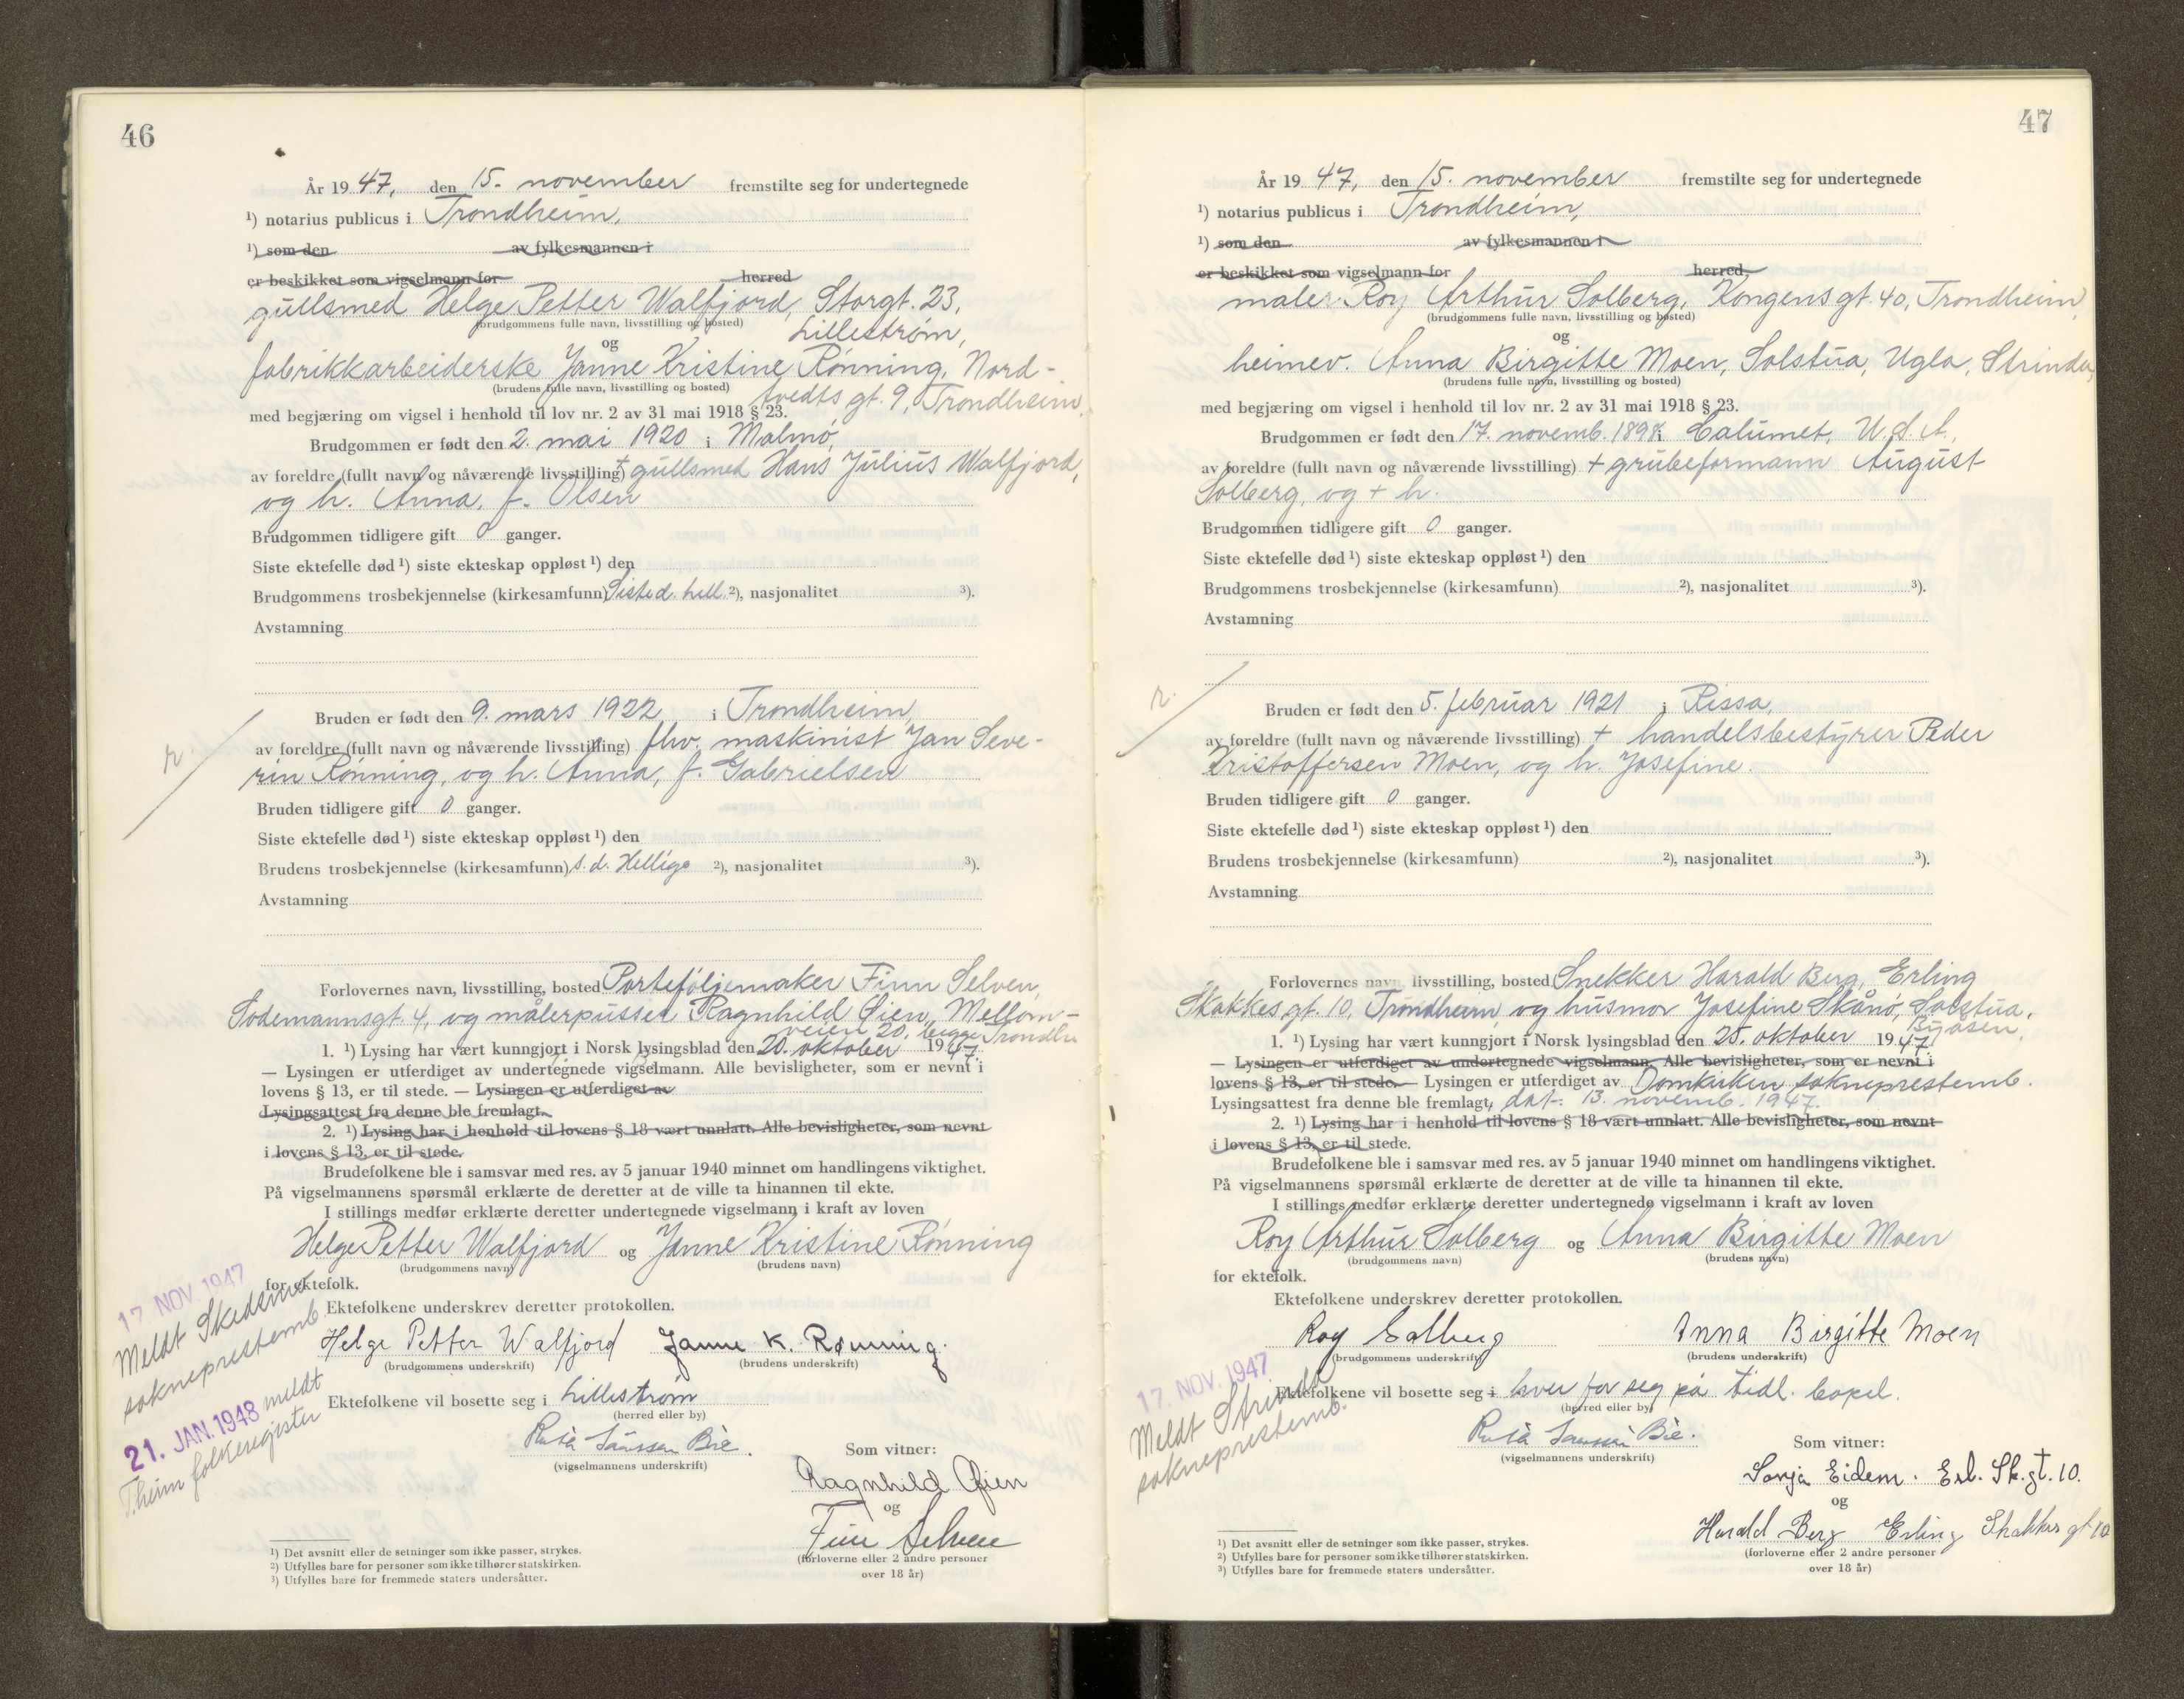 46
År 19 47, den 15. november fremstilte seg for undertegnede
¹) notarius publicus i Trondheim,
¹) som den av fylkesmannen i
er beskikket som vigselmann for herred
gullsmed Helge Petter Walfjord, Storgt. 23,
(brudgommens fulle navn, livsstilling og bosted) Lillestrøm,
og
fabrikkarbeiderske Janne Kristine Rønning, Nord-
(brudens fulle navn, livsstilling og bosted) tvedts gt. 9, Trondheim,
med begjæring om vigsel i henhold til lov nr. 2 av 31 mai 1918 § 23.
Brudgommen er født den 2. mai 1920 i Malmø,
av foreldre (fullt navn og nåværende livsstilling) + gullsmed Hans Julius Walfjord,
og h. Anna, f. Olsen
Brudgommen tidligere gift 0 ganger.
Siste ektefelle død ¹) siste ekteskap oppløst ¹) den
Brudgommens trosbekjennelse (kirkesamfunn) Siste d. hell. ²), nasjonalitet ³).
Avstamning
Bruden er født den 9. mars 1922 i Trondheim,
av foreldre (fullt navn og nåværende livsstilling) fhv. maskinist Jan Seve-
rin Rønning, og h. Anna, f. Gabrielsen
Bruden tidligere gift 0 ganger.
Siste ektefelle død ¹) siste ekteskap oppløst ¹) den
Brudens trosbekjennelse (kirkesamfunn) s. d. Hellige ²), nasjonalitet ³).
Avstamning
Forlovernes navn, livsstilling, bosted Porteføljemaker Finn Selven,
Sodemannsgt. 4, og målerpusser Ragnhild Øien, Mellom-
veien 20, begge Trondh.
1. ¹) Lysing har vært kunngjort i Norsk lysingsblad den 20. oktober 1947.
— Lysingen er utferdiget av undertegnede vigselmann. Alle bevisligheter, som er nevnt i
lovens § 13, er til stede. — Lysingen er utferdiget av
Lysingsattest fra denne ble fremlagt.
2. ¹) Lysing har i henhold til lovens § 18 vært unnlatt. Alle bevisligheter, som nevnt
i lovens § 13, er til stede.
Brudefolkene ble i samsvar med res. av 5 januar 1940 minnet om handlingens viktighet.
På vigselmannens spørsmål erklærte de deretter at de ville ta hinannen til ekte.
I stillings medfør erklærte deretter undertegnede vigselmann i kraft av loven
Helge Petter Walfjord og Janne Kristine Rønning
(brudgommens navn) (brudens navn)
for ektefolk.
Ektefolkene underskrev deretter protokollen.
Helge Petter Walfjord Janne K. Rønning.
(brudgommens underskrift) (brudens underskrift)
Ektefolkene vil bosette seg i Lillestrøm
(herred eller by)
(vigselmannens underskrift)
Som vitner:
Ragnhild Øien
og
Finn Selven
(forloverne eller 2 andre personer
over 18 år)
17 NOV. 1947
Meldt Skedsmo
sokneprestemb.
21. JAN. 1948 meldt
T.heim folkeregister
¹) Det avsnitt eller de setninger som ikke passer, strykes.
²) Utfylles bare for personer som ikke tilhører statskirken.
³) Utfylles bare for fremmede staters undersåtter.
47
År 19 47, den 15. november fremstilte seg for undertegnede
¹) notarius publicus i Trondheim,
¹) som den av fylkesmannen i
er beskikket som vigselmann for herred
maler Roy Arthur Solberg, Kongens gt. 40, Trondheim,
(brudgommens fulle navn, livsstilling og bosted)
og
heimev. Anna Birgitte Moen, Solstua, Ugla, Strinda,
(brudens fulle navn, livsstilling og bosted)
med begjæring om vigsel i henhold til lov nr. 2 av 31 mai 1918 § 23.
Brudgommen er født den 17. novemb. 1898 i Calumet, U.S.A.,
av foreldre (fullt navn og nåværende livsstilling) + grubeformann August
Solberg, og + h.
Brudgommen tidligere gift 0 ganger.
Siste ektefelle død ¹) siste ekteskap oppløst ¹) den
Brudgommens trosbekjennelse (kirkesamfunn) ²), nasjonalitet ³).
Avstamning
Bruden er født den 5. februar 1921 i Rissa,
av foreldre (fullt navn og nåværende livsstilling) + handelsbestyrer Peder
Kristoffersen Moen, og h. Josefine.
Bruden tidligere gift 0 ganger.
Siste ektefelle død ¹) siste ekteskap oppløst ¹) den
Brudens trosbekjennelse (kirkesamfunn) ²), nasjonalitet ³).
Avstamning
Forlovernes navn, livsstilling, bosted Snekker Harald Berg, Erling
Skakkes gt. 10, Trondheim, og husmor Josefine Skånø, Solstua,
Byåsen,
1. ¹) Lysing har vært kunngjort i Norsk lysingsblad den 25. oktober 1947.
— Lysingen er utferdiget av undertegnede vigselmann. Alle bevisligheter, som er nevnt i
lovens § 13, er til stede. — Lysingen er utferdiget av Domkirken sokneprestemb.
Lysingsattest fra denne ble fremlagt, dat. 13. novemb. 1947.
2. ¹) Lysing har i henhold til lovens § 18 vært unnlatt. Alle bevisligheter, som nevnt
i lovens § 13, er til stede.
Brudefolkene ble i samsvar med res. av 5 januar 1940 minnet om handlingens viktighet.
På vigselmannens spørsmål erklærte de deretter at de ville ta hinannen til ekte.
I stillings medfør erklærte deretter undertegnede vigselmann i kraft av loven
Roy Arthur Solberg og Anna Birgitte Moen
(brudgommens navn) (brudens navn)
for ektefolk.
Ektefolkene underskrev deretter protokollen.
Roy Solberg Anna Birgitte Moen
(brudgommens underskrift) (brudens underskrift)
Ektefolkene vil bosette seg i hver for seg på tidl. bopel.
(herred eller by)
(vigselmannens underskrift)
Som vitner:
Sonja Eidem. Erl. Sk.gt. 10.
og
Harald Berg Erling Skakkes gt 10
(forloverne eller 2 andre personer
over 18 år)
17. NOV. 1947
Meldt Strinda
sokneprestemb.
¹) Det avsnitt eller de setninger som ikke passer, strykes.
²) Utfylles bare for personer som ikke tilhører statskirken.
³) Utfylles bare for fremmede staters undersåtter.